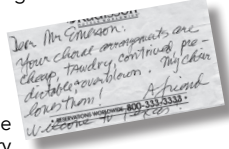 g
Dear Mr. Emerson:
Your choral arrangements are
cheap, tawdry, contrived, pre-
dictable & overblown. My choir
loves them!
A friend
• RESERVATIONS WORLDWIDE 800-333-3333 •
Welcome to Texas!
e
ry